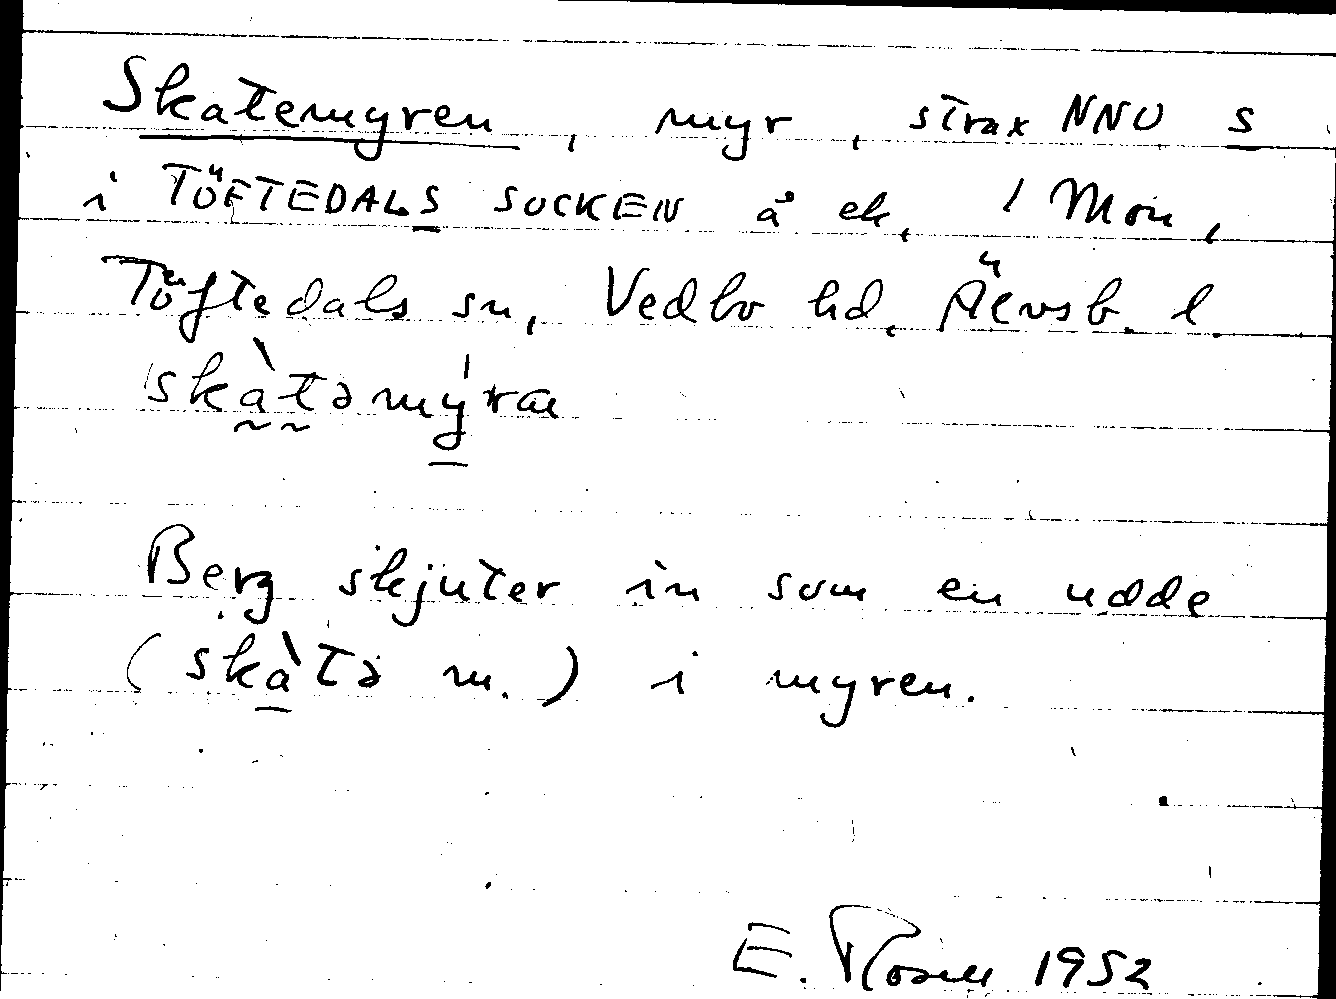 Skatemyren, myr, strax NNO s
i TÖFTEDALS SOCKEN å ek, 1 Mon,
Töftedals sn, Vedbo hd, Älvsb. l.
skàtəmýra
Berg skjuter in som en udde
(skàtə m.) i myren.
E. Rosell 1952